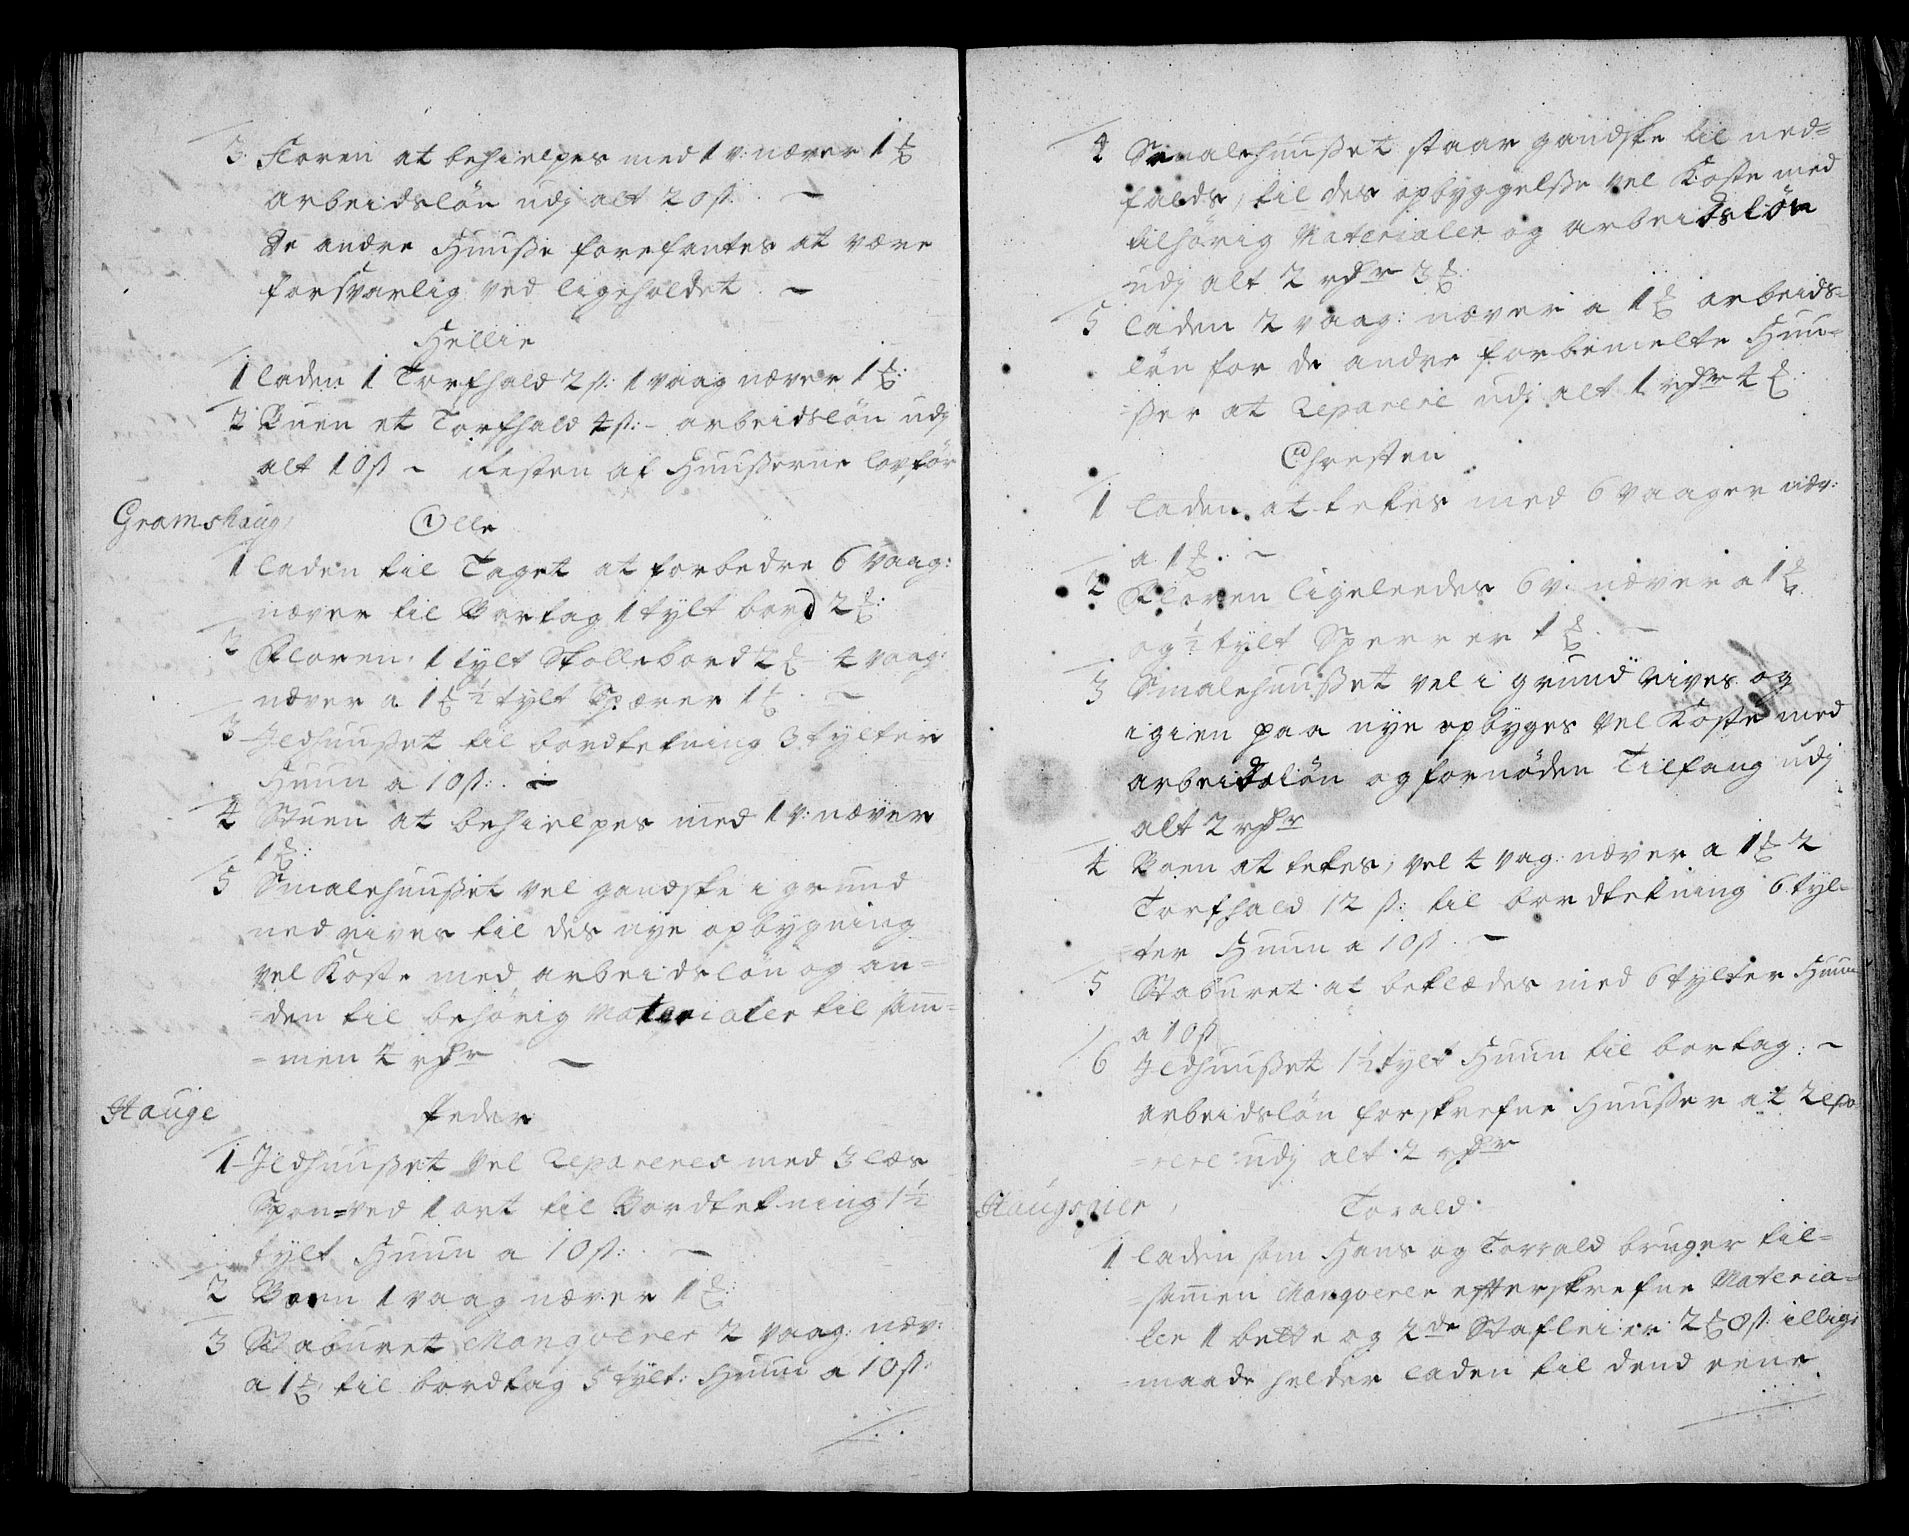 3 Floren at behielpes med 1 v: næver 1 ₰
arbeidsløn udj alt 20 ß. –
De andre Huuße forefantes at være
forsvarlig ved ligeholdet. –
Hellie
1 laden 1 Torfhald 2 ß: 1 vaag næver 1 ₰:
2 Buen et Torfhald 4 ß: – arbeidsløn udj
alt 10 ß – Resten af Huußerne lovfør
Gramshaug Olle
1 laden til Taget at forbedre 6 vaag:
næver til Bortag 1 tylt bord 2 ₰:
2 Floren 1 tylt Skollebord 2 ₰ 4 vaag:
næver a 1 ₰ ½ tylt Spærer 1 ₰. –
3 Jldhuußet til bordtekning 3 tylter
Huun a 10 ß: –
4 Stuen at behielpes med 1 v: næver
1 ₰:
5 Smalehuußet vel gandske i grund
nedrives til des nye opbygning
vel Koste med arbeidsløn og an=
=den til behørig Materialer til sam=
=men 4 rdr –
Hauge Peder
1 Jldhuußet vel Repareres med 3 læs
Spon=ved 1 ort til Bordtekning 1½
tylt Huun a 10 ß: –
2 Boen 1 vaag næver 1 ₰:
3 Staburet Manqverer 2 vaag: næv:
a 1 ₰, til bordtag 5 tylt: Huun a 10 ß:
4 Smalehuußet staar gandske til ned=
falds, til des opbyggelße vel Koste med
tilhørig Materialer og arbeidsløn
udj alt 2 rdr 3 ₰:
5 laden 2 vaag: næver a 1 ₰ arbeids=
løn for de andre forbemelte Huu=
=ßer at Reparere udj alt 1 rdr 4 ₰:
Christen
1 laden at tekes med 6 vaager næv:
a 1 ₰. –
2 Floren ligeleedes 6 v: næver a 1 ₰
og ½ tylt Sperrer 1 ₰. –
3 Smalehuußet vel i grund rives og
igien paa nye opbyges vel Koste med
arbeidsløn og fornøden Tilfang udj
alt 2 rdr
4 Boen at tekes, vel 4 vag: næver a 1 ₰ 2
Torfhald 12 ß: til bordtekning 6 tyl=
=ter Huun a 10 ß. –
5 Staburet at beklædes med 6 tylter Huun
a 10 ß
6 Jldhuußet 1½ tylt Huun til bortag: –
arbeidsløn forskrefne Huußer at Repa
=rere udj alt 2 rdr
Torald
1 laden som Hans og Torrald bruger til=
=sammen Manqverer efterskrefne Materia=
ler 1 bette og 2de Stafleier 2 ₰ 8 ß: illige
=maade helder laden til dend eene